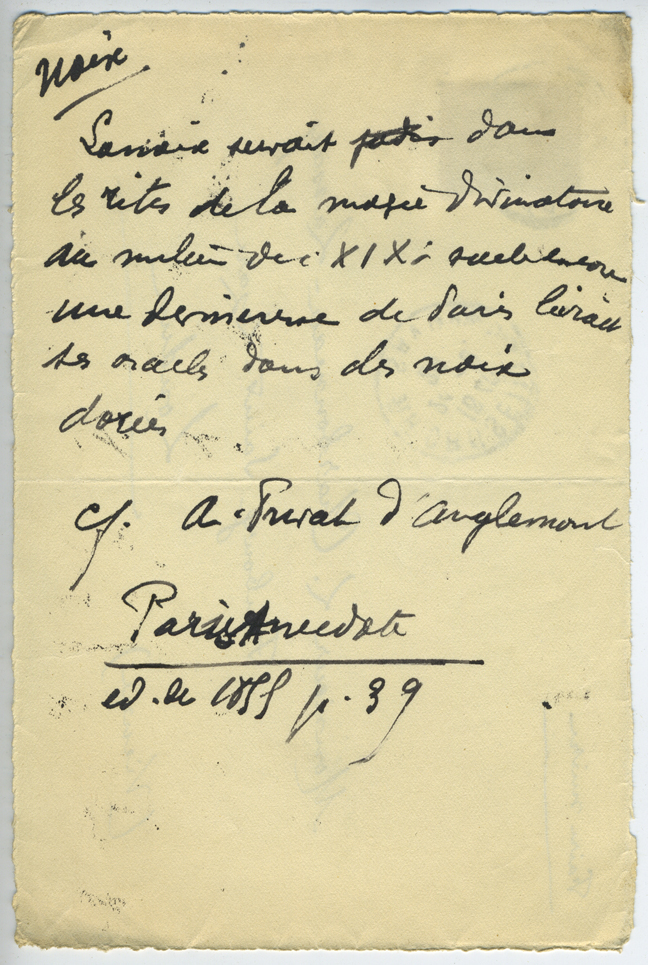 Noix
La noix servait jadis dans
les rites de la magie divinatoire
au milieu du XIXe siècle encore
une devineresse de Paris livrait
ses oracles dans des noix
dorées
cf. A. Privat d'Anglemont
Paris Anecdote
ed. de 1855 p. 39